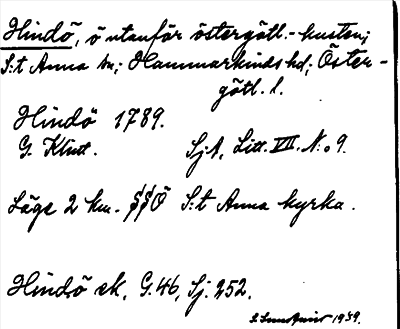 Hindö, ö utanför östergötl.-kusten;
S:t Anna sn; Hammarkinds hd; Öster-
götl. l.
Hindö 1789.
G. Klint. SjA, Litt. VII. N:o 9.
Läge 2 km. SSÖ S:t Anna kyrka.
Hindö ek, G.46, Sj. 252.
1959.